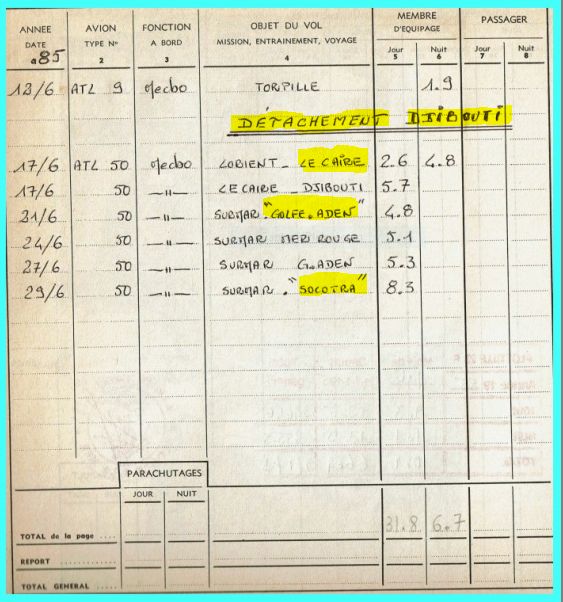 ANNEE AVION FONCTION OBJET DU VOL MEMBRE D'EQUIPAGE PASSAGER
DATE TYPE N° A BORD MISSION, ENTRAINEMENT, VOYAGE Jour Nuit Jour Nuit
85 2 3 4 5 6 7 8
12/6 ATL 9 Mecbo TORPILLE 1.9
DÉTACHEMENT DJIBOUTI
17/6 ATL 50 Mecbo LORIENT - LE CAÏRE 2.6 4.8
17/6 50 -"- LE CAIRE - DJIBOUTI 5.7
21/6 50 -"- SURMAR. "GOLFE.ADEN" 4.8
24/6 50 -"- SURMAR MER ROUGE 5.1
27/6 50 -"- SURMAR G.ADEN 5.3
29/6 50 -"- SURMAR. "SOCOTRA" 8.3
PARACHUTAGES
JOUR NUIT
TOTAL de la page .... 31.8 6.7
REPORT ............
TOTAL GENERAL .....